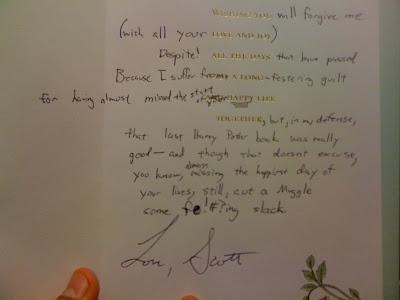 WISHING YOU will forgive me
(with all your LOVE AND JOY)
Despite! ALL THE DAYS that have passed
Because I suffer from A LONG-festering guilt
for having almost missed the start of your HAPPY LIFE
TOGETHER, but, in my defense,
that last Harry Potter book was really
good—and though that doesn't excuse,
you know, almost missing the happiest day of
your lives, still, cut a Muggle
some, fe!#?ing slack.
Love, Scott